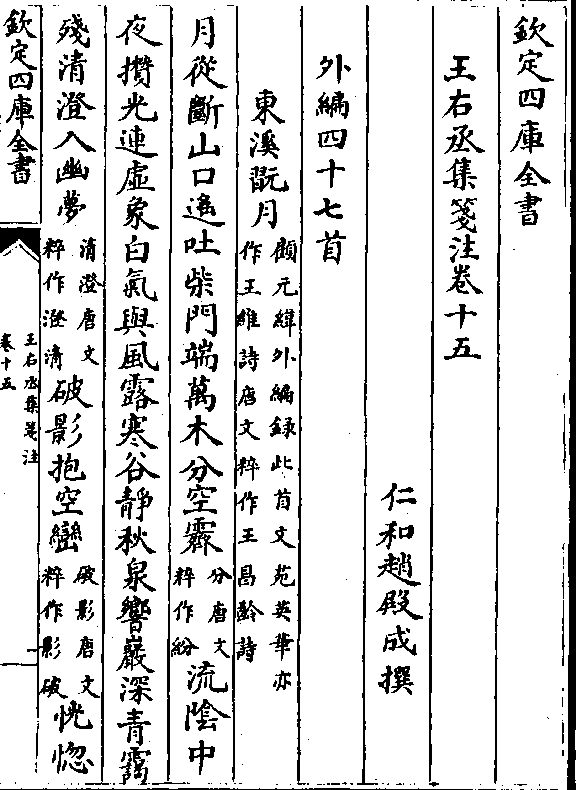 欽定四庫全書
王右丞集箋注卷十五
仁和趙殿成撰
外編四十七首
東溪翫月顧元緯外編録此首文苑英華亦作王維詩唐文粹作王昌齡詩
月從斷山口遙吐柴門端萬木分空霽分唐文粹作紛流陰中
夜攢光連虛象白氣與風露寒谷靜秋泉響巖深青靄
殘清澄入幽夢清澄唐文粹作澄清破影抱空巒破影唐文粹作影破恍惚
欽定四庫全書
王右丞集箋注
卷十五
一